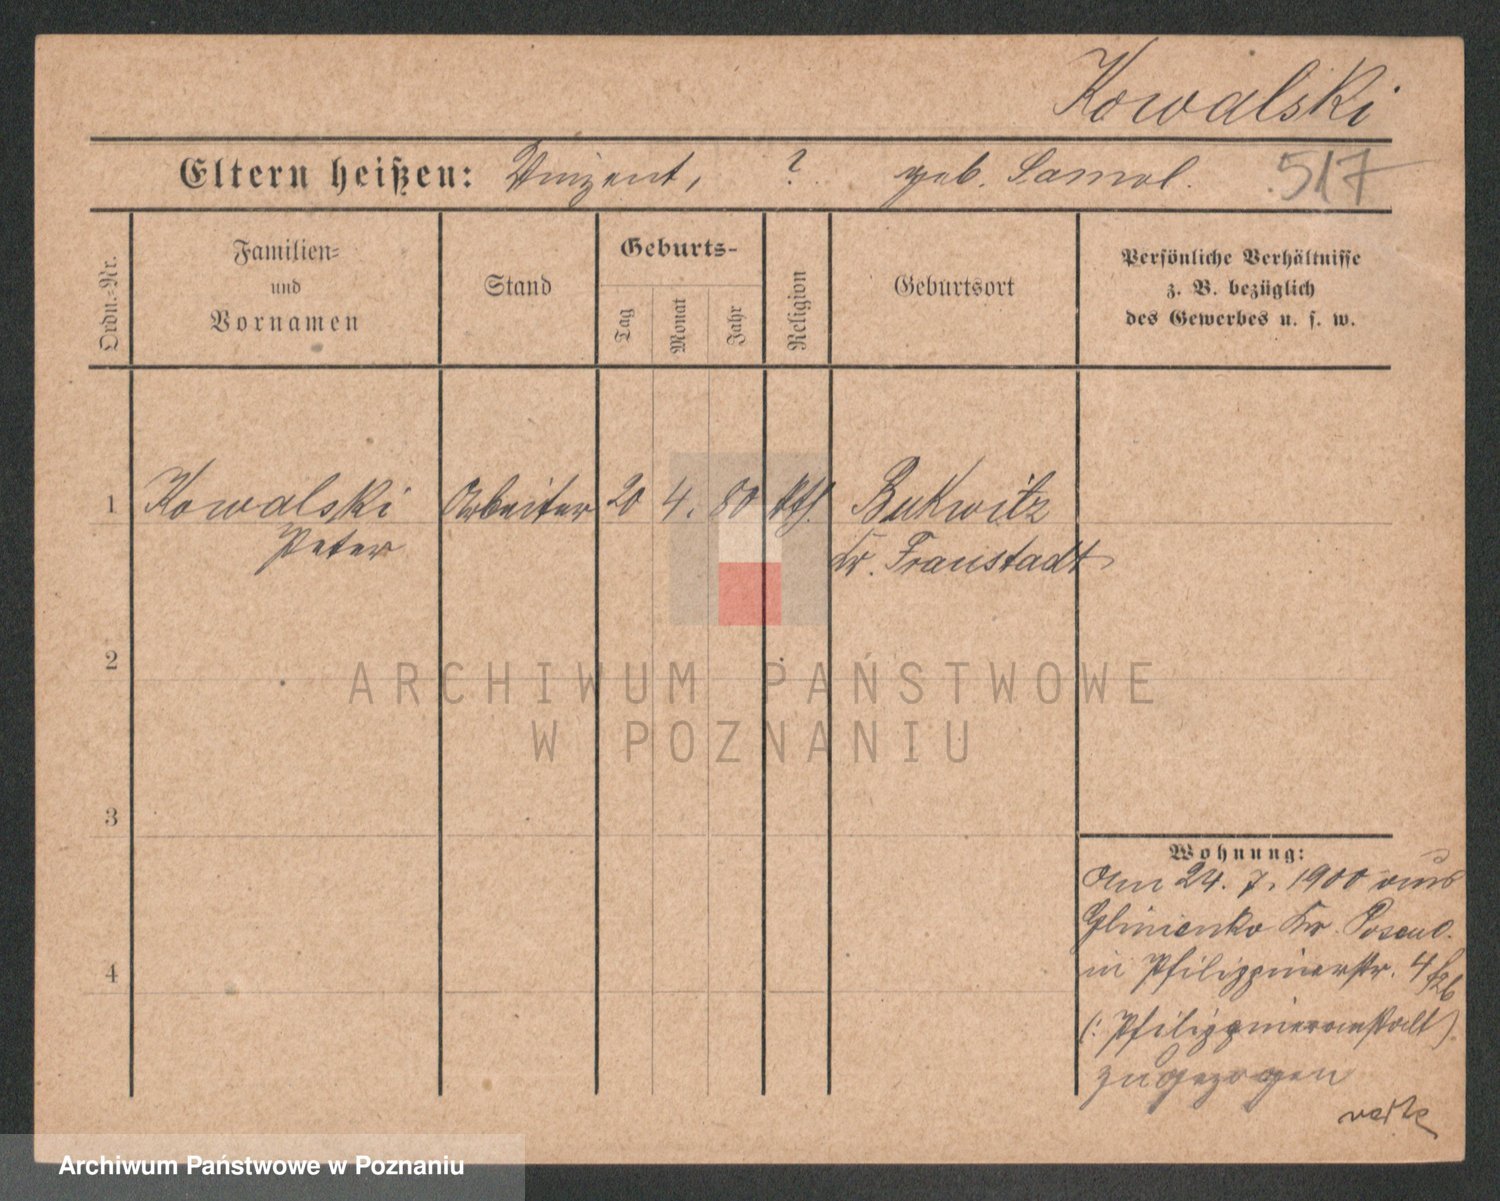 Kowalski
Eltern heißen: Vinzent, ? geb. Samol. 517
Ordn.-Nr.
Familien-
und
Vornamen
Stand
Geburts-
Tag
Monat
Jahr
Religion
Geburtsort
Persönliche Verhältnisse
z. B. bezüglich
des Gewerbes u. s. w.
1 Kowalski Arbeiter 20 4. 80 kth. Bukwitz
Peter Kr. Fraustadt
2
ARCHIWUM PAŃSTWOWE
W POZNANIU
3
Wohnung:
Am 24. 7. 1900 aus
Glinienko Kr. Posen O.
4 in Philippinerstr. 4
(: Philippineranstalt)
zugezogen
Archiwum Państwowe w Poznaniu